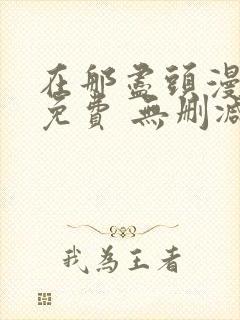 在那盡頭漫
免費 無刪減
我為王者